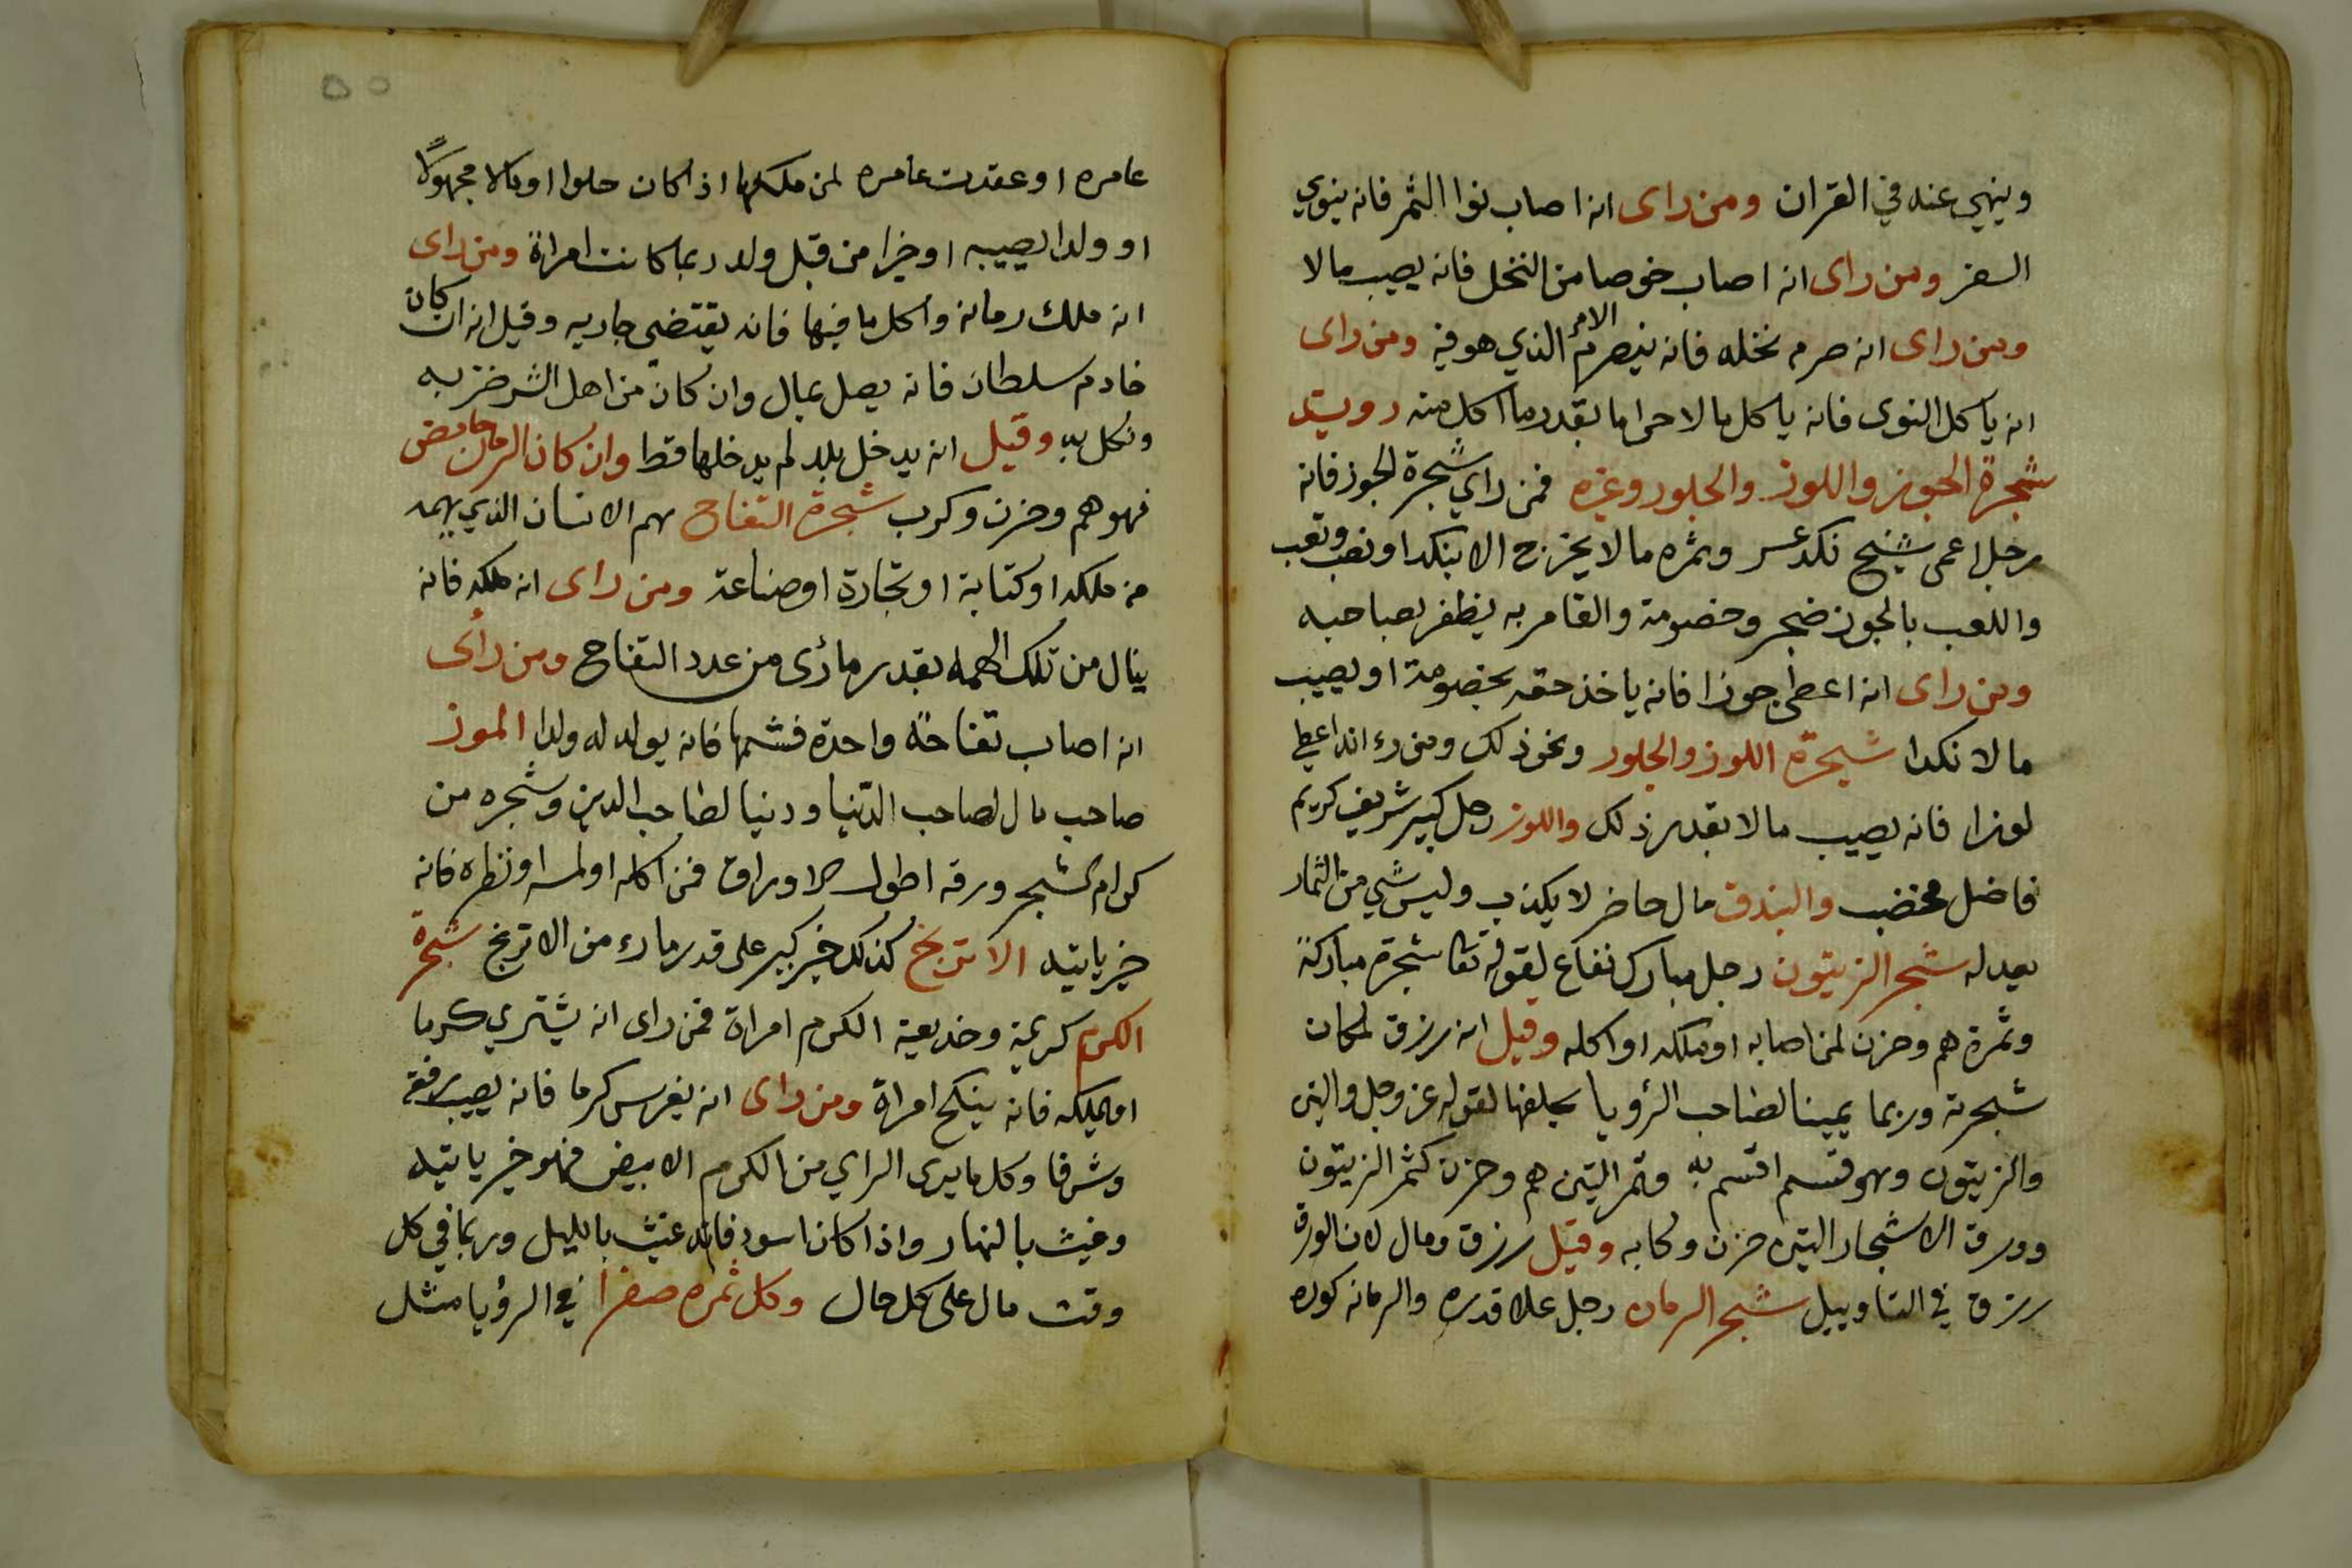 وينهي عنه في القران ومن راى انه اصاب نوا التمر فانه ينوي
السفر ومن راى انه اصاب خوصا من النخل فانه يصيب مالا
ومن راى انه صرم نخله فانه ينصرم الامر الذي هو فيه ومن راى
انه ياكل النوى فانه ياكل مالا حراما بقدر ما اكل منه
شجرة الجوز واللوز والجلوز وغيره فمن راي شجرة الجوز فانه
رجل اعمى شيخ نكد عسر وثمره مالا يخرج الا بنكد او نصب وتعب
واللعب بالجوز ضجر وخصومة والقامر به يظفر بصاحبه
ومن راى انه اعطى جوزا فانه ياخذ حقه بخصومة او يصيب
مالا نكدا شجرة اللوز والجلوز ونحو ذلك ومن رءا انه اعطي
لوزا فانه يصيب مالا بقدر ذلك واللوز رجل كبير شريف كريم
فاضل مخضب والبندق مال حاضر لا يكذب وليس شي من الثمار
يعدله شجر الزيتون رجل مبارك نفاع لقوله تعا شجرة مباركة
وثمرة هم وحزن لمن اصابه او ملكه او اكله وقيل انه رزق لمكان
شجرته وربما يمينا لصاحب الرؤيا يحلفها لقوله عز وجل والتين
والزيتون وهو قسم اقسم به وثمر التين هم وحزن كثمر الزيتون
وورق الاشجار التين حزن وكابه وقيل رزق ومال لان الورق
رزق في التاويل شجر الرمان رجل علا قدره والرمانه كوره
عامره او عقدت عامره لمن ملكها اذا كان حلوا او مالا مجهولا
او ولدا يصيبه او خيرا من قبل ولد ربما كانت امراة ومن راى
انه ملك رمانه واكل ما فيها فانه يقتضي جاريه وقيل انه ان كان
خادم سلطان فانه يصل بمال وان كان من اهل الشر ضرب
ونكل به وقيل انه يدخل بلد لم يدخلها قط وان كان الرمان حامض
فهو هم وحزن وكرب شجرة التفاح هم الانسان الذي يهمه
من ملكه او كتابة او تجارة او صناعة ومن راى انه ملكه فانه
ينال من تلك الهمه بقدر ما رئى من عدد التفاح ومن رائى
انه اصاب تفاحة واحدة فشمها فانه يولد له ولدا الموز
صاحب مال لصاحب الدنيا ودنيا لصاحب الدين وشجره من
كرام الشجر ورقه اطول الاوراق فمن اكله او لمسه او نظره فانه
خير ياتيه الاترنج كذلك خير كبير على قدر ما رء من الاترنج شجرة
الكرم كريمة وخديعة الكرم امراة فمن راى انه يشتري كرما
او يملكه فانه ينكح امراة ومن راى انه يغرس كرما فانه يصيب رفقة
وشرفا وكل ما يرى الراي من الكرم الابيض فهو خير ياتيه
وغيث بالنهار واذا كان اسود فانه غيث بالليل وربما في كل
وقت مال على كل حال وكل ثمره صفرا في الرؤيا مثل